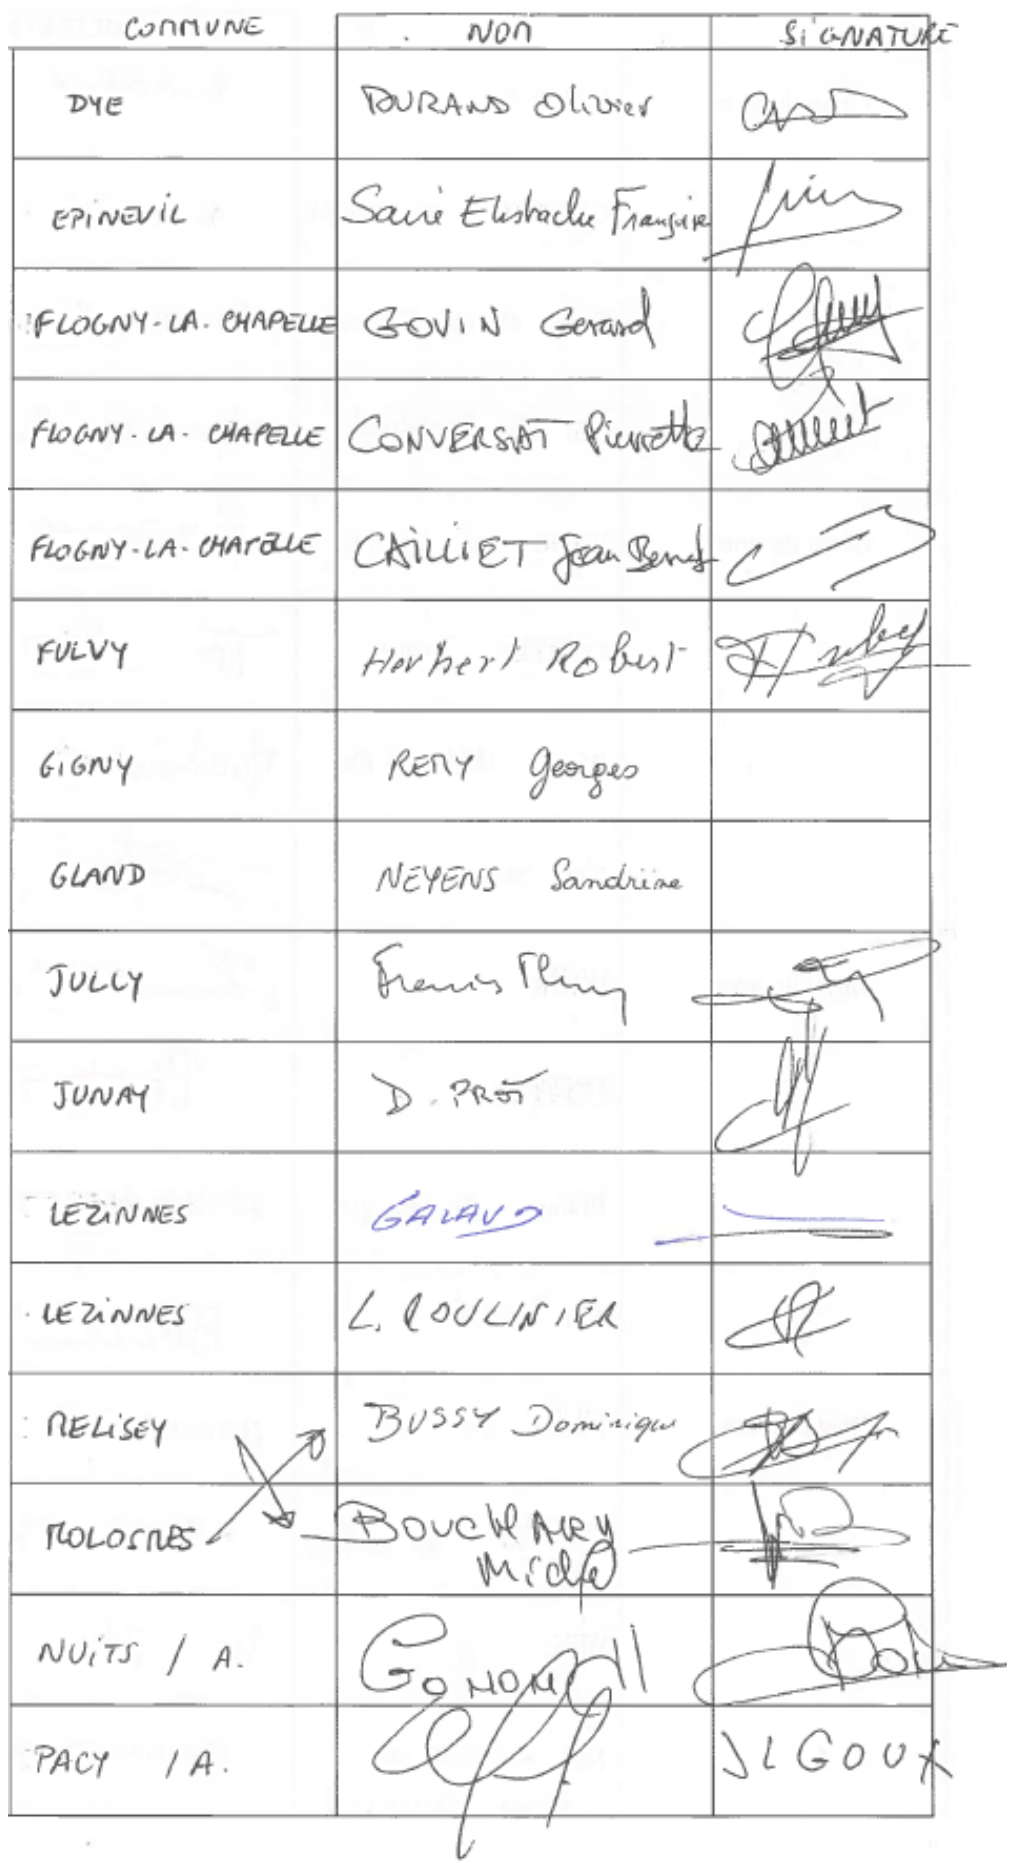 COMMUNE NOM SIGNATURE
DYE DURAND Olivier
EPINEUIL Françoise
FLOGNY-LA-CHAPELLE GOVIN Gerard
FLOGNY-LA-CHAPELLE CONVERSAT Pierrette
FLOGNY-LA-CHAPELLE CAILLIET Jean Bernard
FULVY Herbert Robert
GIGNY REMY Georges
GLAND NEYENS Sandrine
JULLY Francis
JUNAY D. PROT
LEZINNES GALAUD
LEZINNES L. ROULINIER
MELISEY BUSSY Dominique
MOLOSMES BOUCHARY
Michel
NUITS / A.
PACY / A. JLGOUX